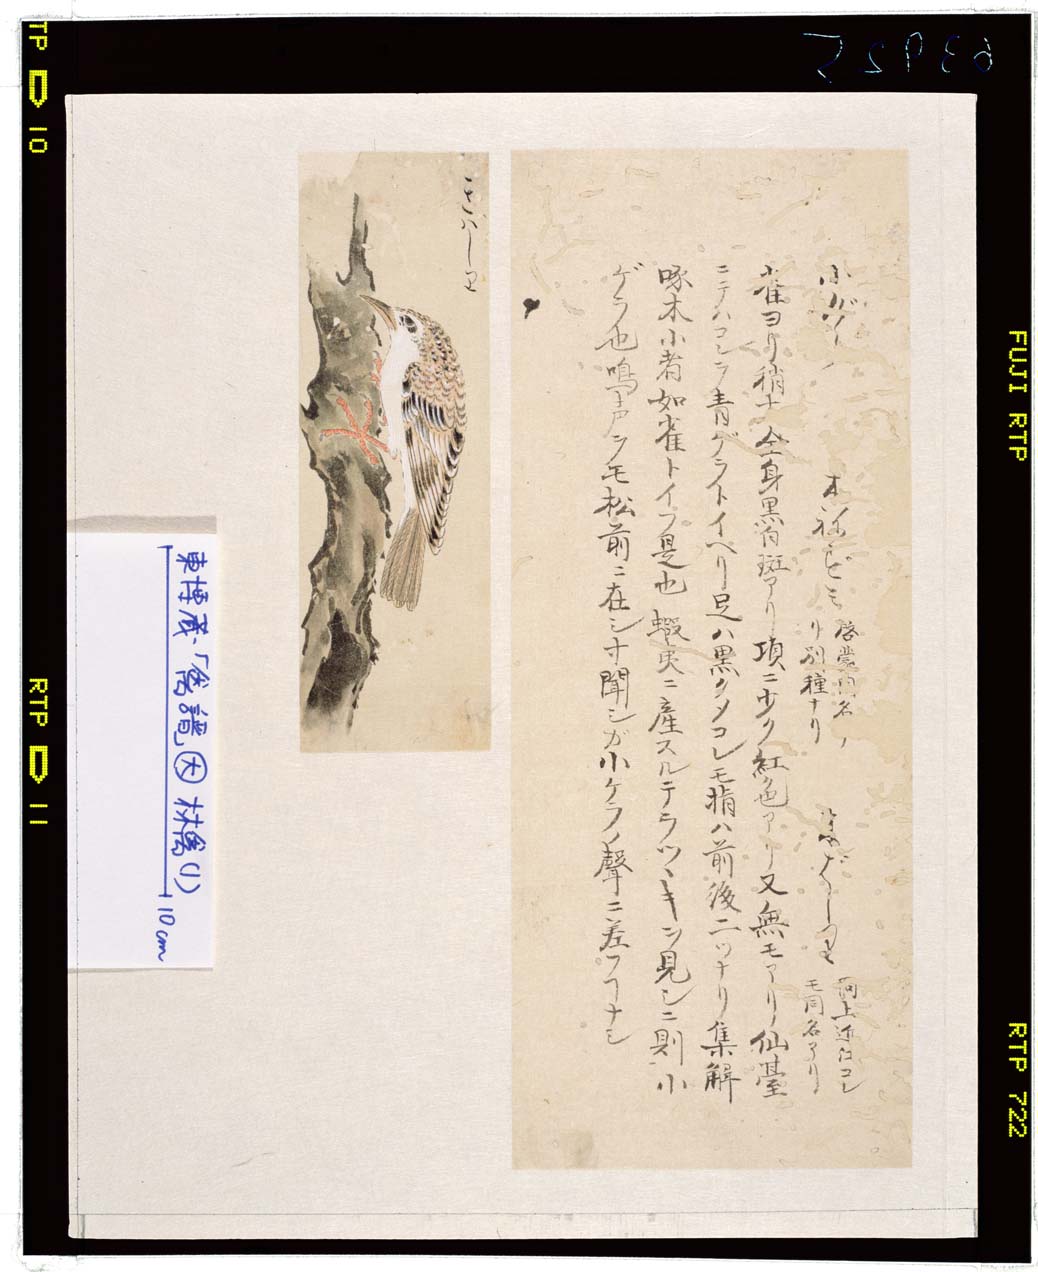 小ゲラ
木ねずミ
啓蒙同名
り別種ナリ
木ばしり
同上近江コレ
モ同名アリ
雀ヨリ稍大全身黒白斑アリ項ニ少ク紅色アリ又無モアリ仙臺
ニテハコレヲ青ゲラトイヘリ足ハ黒クメコレモ指ハ前後二ツナリ集解
啄木小者如雀トイフ是也蝦夷ニ産スルテラツヽキヲ見シニ則小
ゲラ也鳴声ヲモ松前ニ在シ寸聞シガ小ケラノ聲ニ差フヿナシ
きばしり
東博蔵、「禽譜」 大 林禽(1)
10cm
63925
TP 10
RTP 11
FUJI RTP
RTP 722